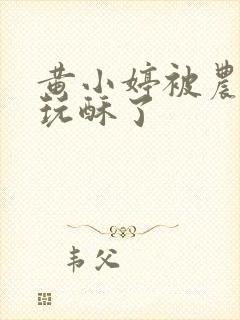 黄小婷被農
玩酥了
韦父